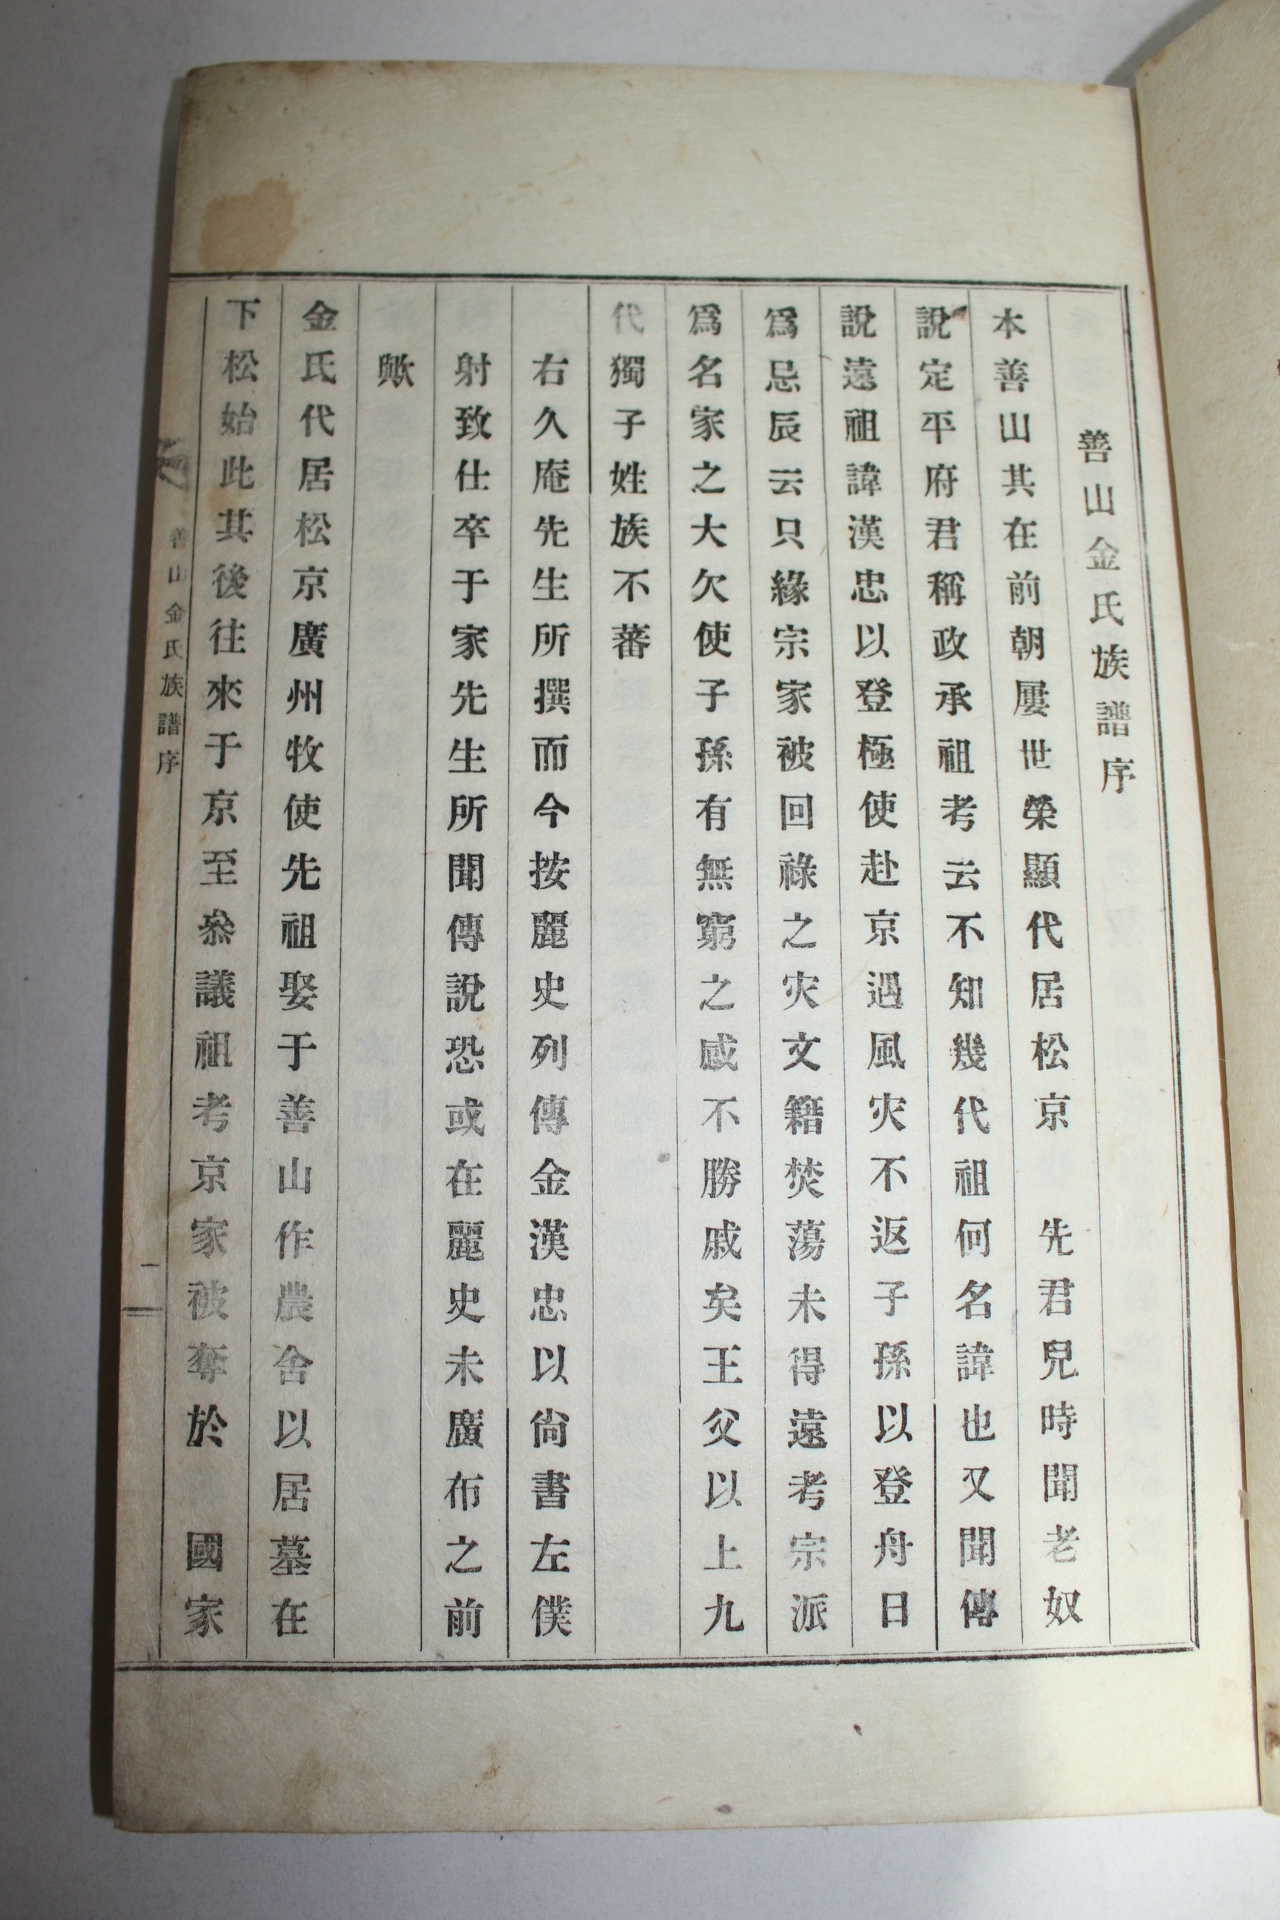 善山金氏族譜序
本善山其在前朝屢世榮顯代居松京　先君兒時聞老奴
說定平府君稱政承祖考云不知幾代祖何名諱也又聞傳
說遠祖諱漢忠以登極使赴京遇風灾不返子孫以登舟日
爲忌辰云只緣宗家被回祿之灾文籍焚蕩未得遠考宗派
爲名家之大欠使子孫有無窮之慼不勝慼矣王父以上九
代獨子姓族不蕃
右久庵先生所撰而今按麗史列傳金漢忠以尙書左僕
射致仕卒于家先生所聞傳說恐或在麗史未廣布之前
歟
金氏代居松京廣州牧使先祖娶于善山作農舍以居墓在
下松始此其後往來于京至叅議祖考京家被奪於　國家
善山金氏族譜序
二